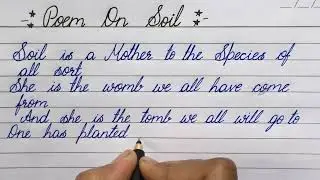 Poem On Soil
Soil is a Mother to the Species of
all sort,
She is the womb we all have come
from
And she is the tomb we all will go to
One has planted